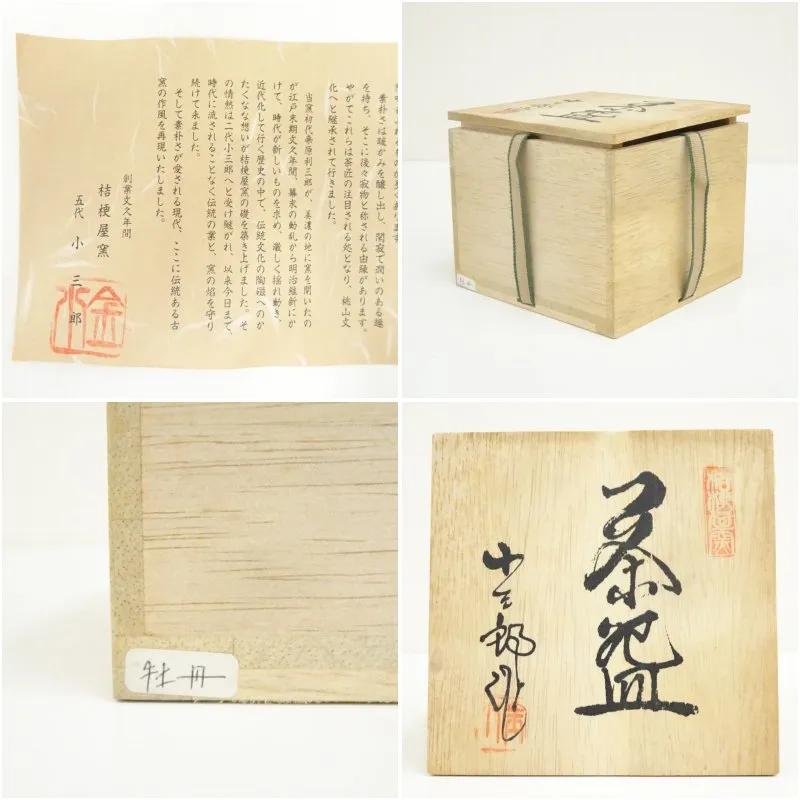 素朴さは暖かみを醸し出し、閑寂で潤いのある趣
を持ち、そこに後々寂物と称される由縁があります。
やがてこれらは茶匠の注目される処となり、桃山文
化へと継承されて行きました。
当窯初代桑原利三郎が、美濃の地に窯を開いたの
が江戸末期文久年間、幕末の動乱から明治維新にか
けて、時代が新しいものを求め、激しく揺れ動き、
近代化して行く歴史の中で、伝統文化の陶磁へのか
たくなな想いが桔梗屋窯の礎を築き上げました。そ
の情熱は二代小三郎へと受け継がれ、以来今日まで、
時代に流されることなく伝統の業と、窯の焰を守り
続けて来ました。
そして素朴さが愛される現代、ここに伝統ある古
窯の作風を再現いたしました。
創業文久年間
桔梗屋窯
五代 小三郎
牡丹
牡丹
茶盌
小三郎作